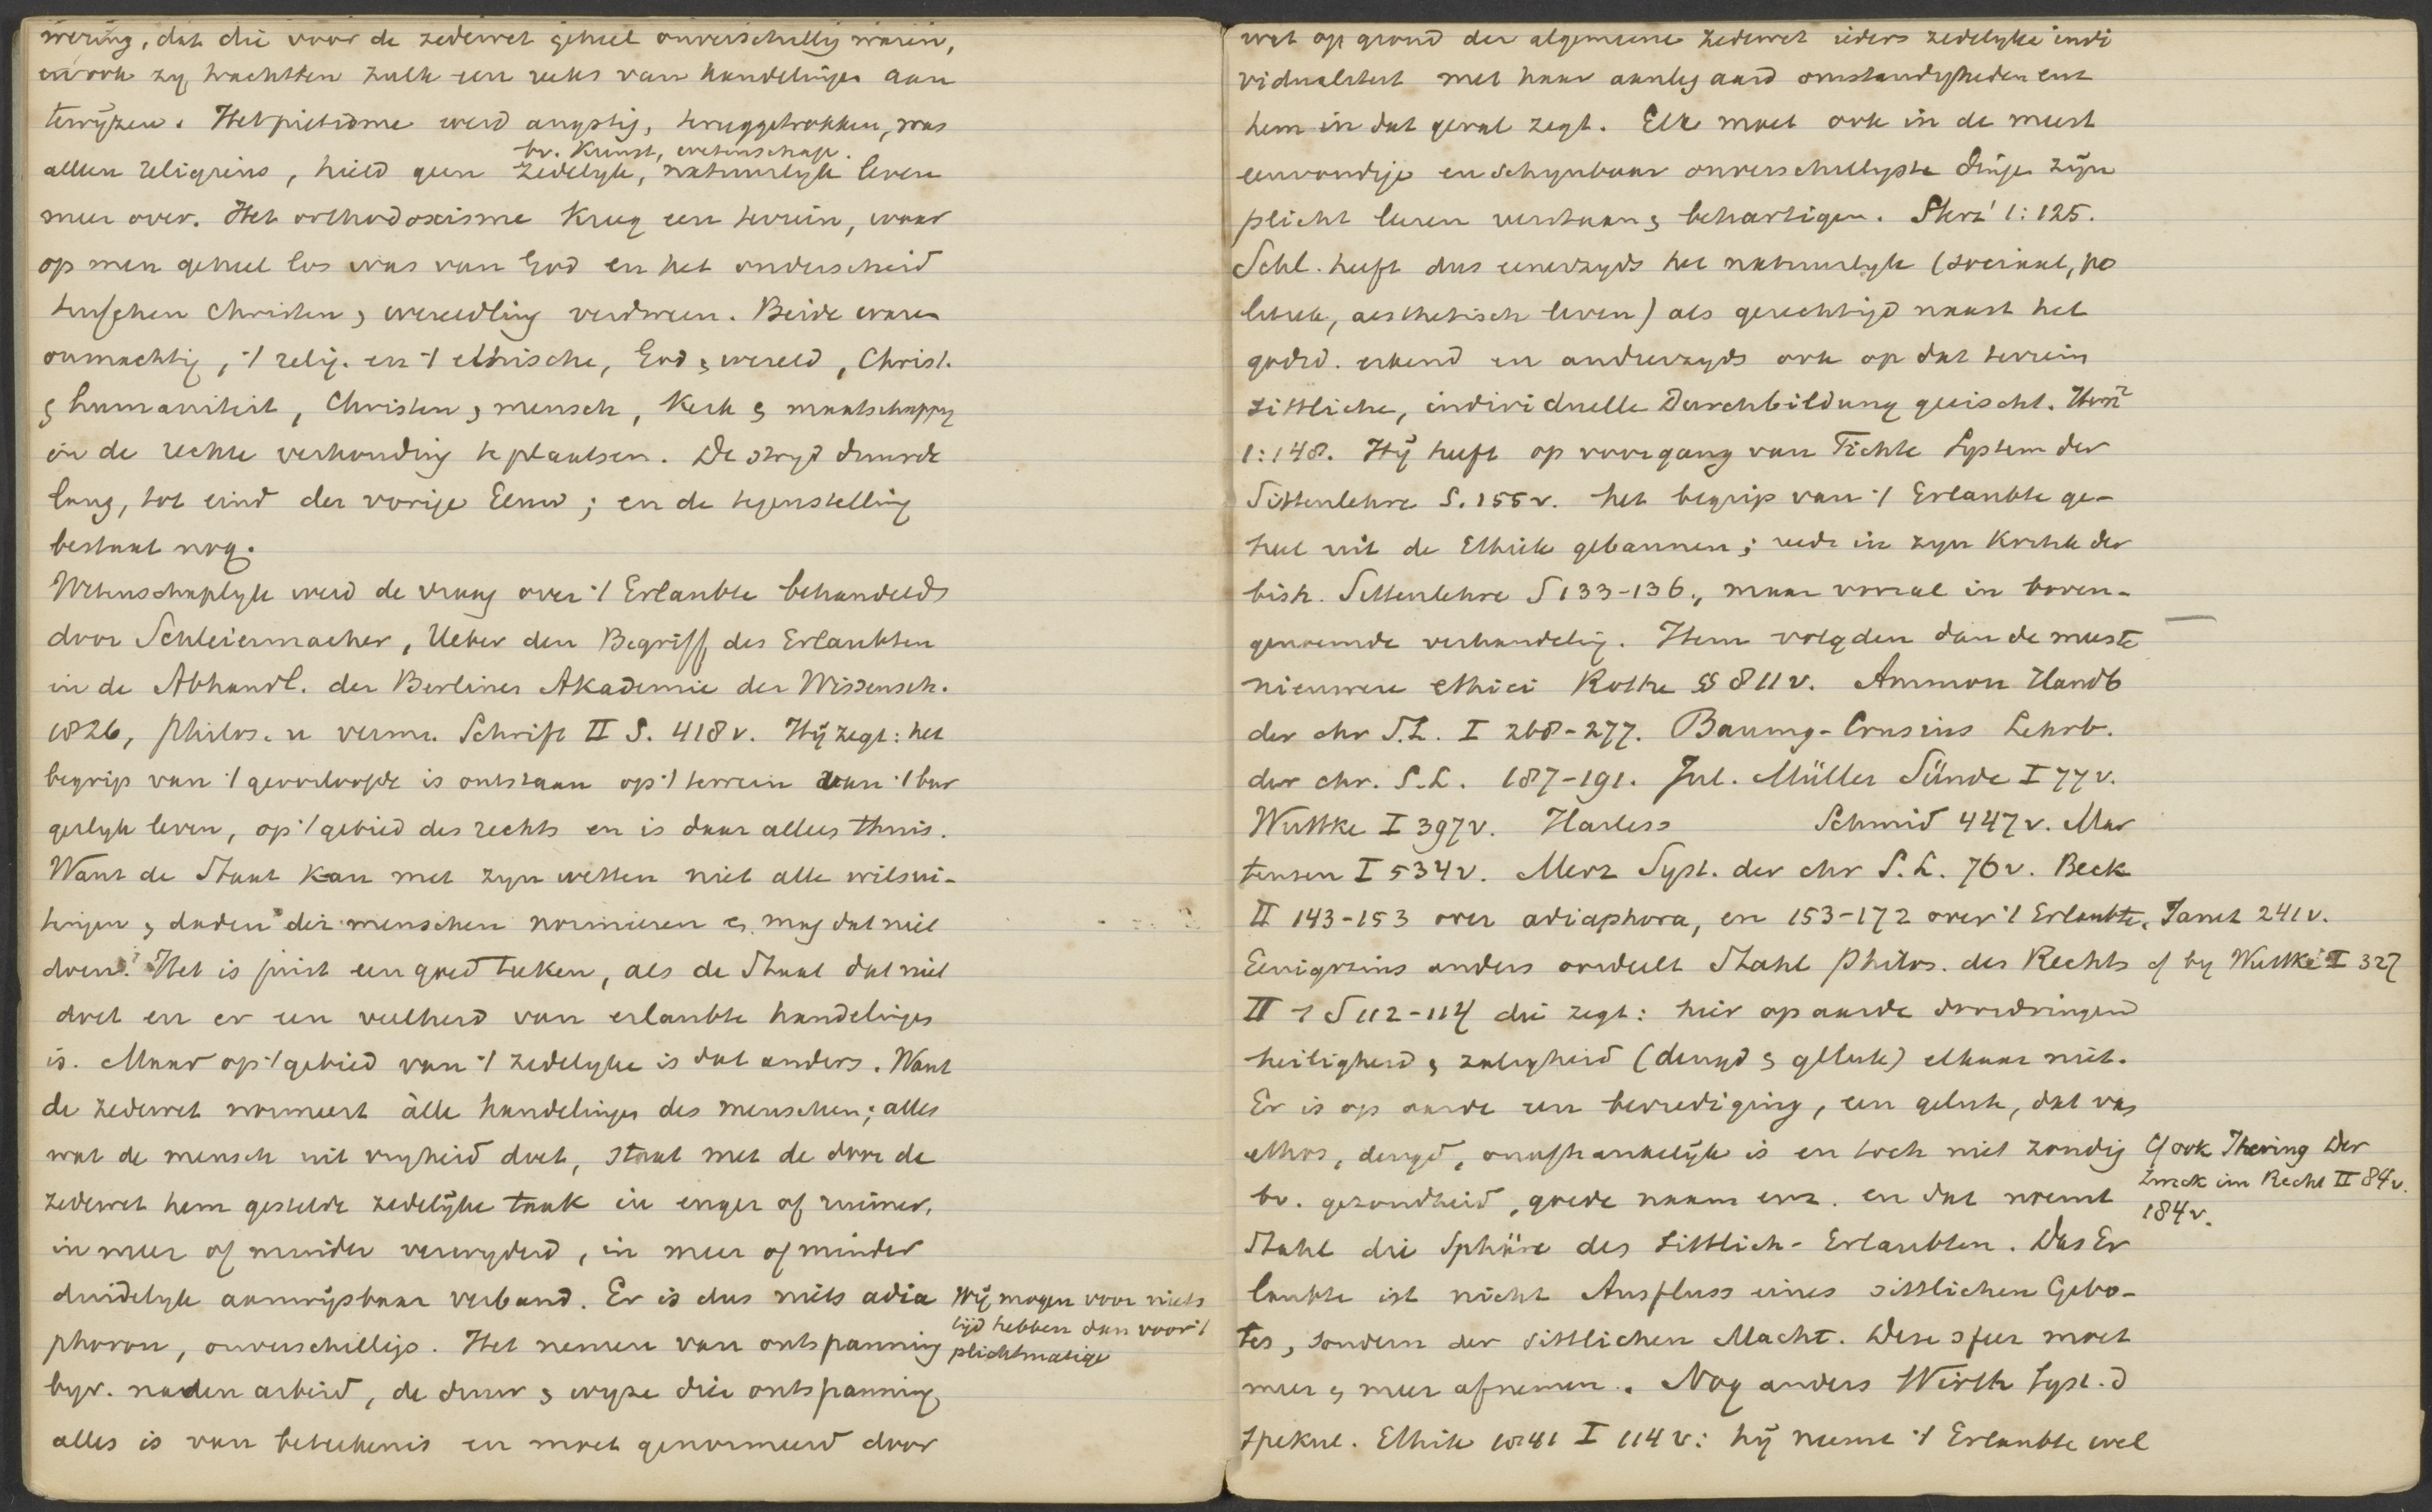 wering, dat die voor de zedewet geheel onverschillig waren,
en ook zy trachtten zulk een reeks van handelingen aan
tewyzen. Het pietisme werd angstig, teruggetrokken, was
bv. Kunst, wetenschap.
alleen religieus, hield geen zedelyk, natuurlyk leven
meer over. Het orthodoxisme kreeg een terrein, waar
op men geheel los was van God en het onderscheid
tusschen Christen & wereedling verdween. Beide waren
onmachtig, 't relig. en 't ethische, God & wereld, Christ.
& humaniteit, Christen & mensch, Kerk & maatschappy
in de rechte verhouding te plaatsen. De stryd duurde
lang, tot eind der vorige Eeuw; en de tegenstelling
bestaat nog.
Wetenschaplyk werd de vraag over 't Erlaubte behandeld
door Schleiermacher, Ueber den Begriff des Erlaubten
in de Abhandl. der Berliner Akademie der Wissensch.
1826, philos. u verm. Schrift II S. 418 v. Hij zegt: het
begrip van 't geoorloofde is ontstaan op 't terrein van 't bur
gerlyk leven, op 't gebied des rechts en is daar alleen thuis.
Want de Staat kan met zyn wetten niet alle wilsui-
tingen & daden der menschen normeeren & mag dat niet
doen. Het is juist een goed teeken, als de Staat dat niet
doet en er een veelheid van erlaubte handelingen
is. Maar op 't gebied van 't zedelyke is dat anders. Want
de zedewet normeert àlle handelingen des menschen; alles
wat de mensch uit vryheid doet, staat met de door de
zedewet hem gestelde zedelyke taak in enger of ruimer,
in meer of minder verwyderd, in meer of minder
duidelyk aanwijsbaar verband. Er is dus niets adia
phoron, onverschilligs. Het nemen van ontspanning
Wij mogen voor niets
tijd hebben dan voor 't
plichtmatige
bijv. na den arbeid, de duur & wyze dier ontspanning,
alles is van beteekenis en moet genormeerd door
wat op grond der algemeene zedewet ieders zedelyke indi
vidualiteit met haar aanleg aard omstandigheden enz
hem in dat geval zegt. Elk moet ook in de meest
eenvoudige en schynbaar onverschilligste dinge zijn
plicht leeren verstaan & behartigen. 1:125.
Schl. heeft dus eenerzyds het natuurlyk (sociaal, po
litiek, aesthetisch leven) als gerechtigd naast het
godsd. erkend en anderzyds ook op dat terrein
sittliche, individuelle Durchbildung geeischt.
1:148. Hij heeft op voorgang van Fichte System der
Sittenlehre S. 155 v. het begrip van 't Erlaubte ge-
heel uit de Ethiek gebannen; reeds in zyn Kritik der
bish. Sittenlehre S 133-136., maar vooral in boven-
genoemde verhandeling. Hem volgden dan de meeste
nieuwere ethici Rothe §§ 811 v. Ammon Handb
der chr S.L. I 268-277. Baumg-Crusius Lehrb.
der chr. S.L. 187-191. Jul. Müller Sünde I 77 v.
Wuttke I 397 v. Harless Schmid 447 v. Mar
tensen I 534 v. Merz Syst. der chr S.L. 76 v. Beck
II 143-153 over adiaphora, en 153-172 over 't Erlaubte. Janet 241 v.
Eenigszins anders oordeelt Stahl Philos. des Rechts cf by Wuttke I 327
II 1 S 112-114 die zegt: hier op aarde doordringen
heiligheid & zaligheid (deugd & geluk) elkaar niet.
Er is op aarde een bevrediging, een geluk, dat van
ethos, deugd, onafhankelijk is en toch niet zondig
bv. gezondheid, goede naam enz. en dat noemt
Cf ook Ihering Der
Zweck im Recht II 84 v.
184 v.
Stahl die Sphäre des Sittlich-Erlaubten. Das Er
laubte ist nicht Ausfluss eines sittlichen Gebo-
tes, sondern der sittlichen Macht. Deze sfeer moet
meer & meer afnemen. Nog anders Wirth Syst. d
Spekul. Ethik 1841 I 114 v: hij neemt 't Erlaubte wel